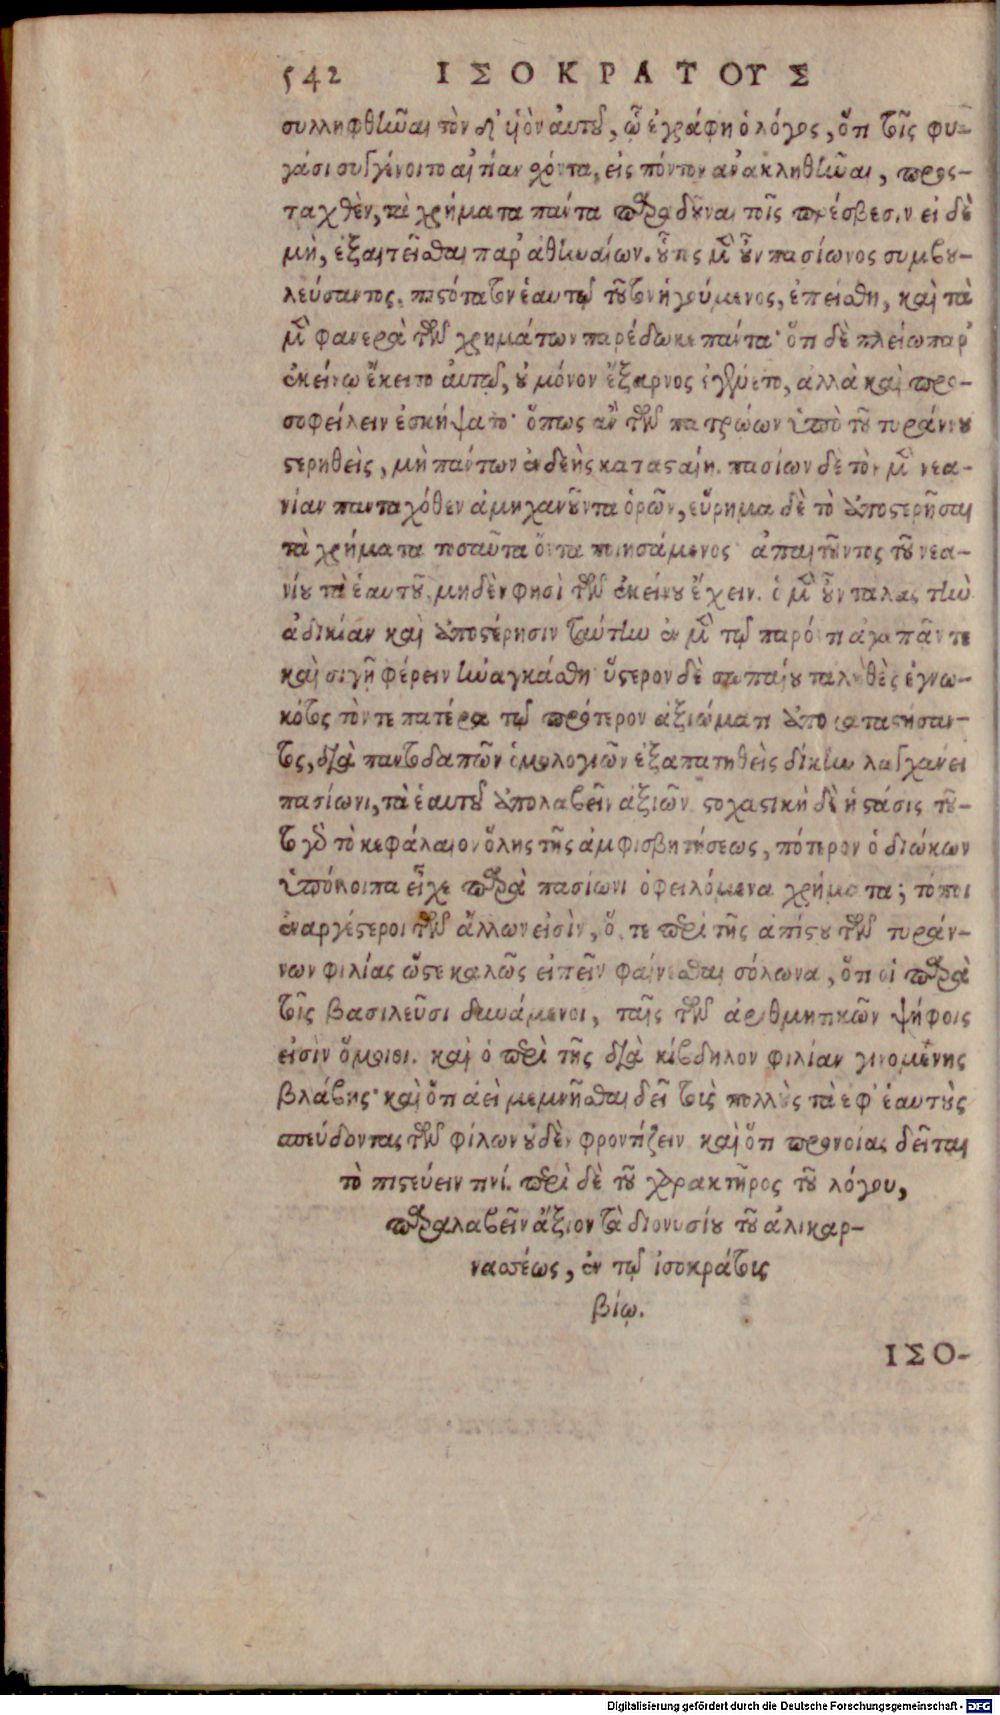 542 ΙΣΟΚΡΑΤΟΥΣ
συλληφθῆναι τὸν δ' υἱὸν αὐτοῦ, ᾧ ἐγράφη ὁ λόγος, ὅτι τοῖς φυ-
γάσι συγγένοιτο αἰτίαν ἔχοντα, εἰς πόντον ἀνακληθῆναι, προς-
ταχθὲν, τὰ χρήματα πάντα παραδοῦναι τοῖς πρέσβεσιν εἰ δὲ
μὴ, ἐξαιτεῖσθαι παρ' ἀθηναίων. οὗτος μὲν οὖν πασίωνος συμβου-
λεύσαντος, πιστότατον ἑαυτῷ τοῦτον ἡγούμενος, ἐπείσθη, καὶ τὰ
μὲν φανερὰ τῶν χρημάτων παρέδωκε πάντα· ὅτι δὲ πλείω παρ'
ἐκείνῳ ἔκειτο αὐτῷ, οὐ μόνον ἔξαρνος ἐγένετο, ἀλλὰ καὶ προ-
σοφείλειν ἐσκήψατο· ὅπως ἂν τῶν πατρώων ὑπὸ τοῦ τυράννου
στερηθεὶς, μὴ πάντων ἐνδεὴς κατασταίη. πασίων δὲ τὸν μὲν νεα-
νίαν πανταχόθεν ἀμηχανοῦντα ὁρῶν, εὕρημα δὲ τὸ ἀποστερῆσαι
τὰ χρήματα τοσαῦτα ὄντα ποιησάμενος ἀπαιτοῦντος τοῦ νεα-
νίου τὰ ἑαυτοῦ, μηδὲν φησὶ τῶν ἐκείνου ἔχειν. ὁ μὲν οὖν τάλας τὴν
ἀδικίαν καὶ ἀποστέρησιν ταύτην ἐν μὲν τῷ παρόντι ἀγαπᾶν τε
καὶ σιγῇ φέρειν ἠναγκάσθη ὕστερον δὲ σωπαίου ταληθὲς ἐγνω-
κότος τόν τε πατέρα τῷ πρότερον ἀξιώματι ἀποκαταστήσαν-
τος, διὰ παντοδαπῶν ὁμολογιῶν ἐξαπατηθεὶς δίκην λαγχάνει
πασίωνι, τὰ ἑαυτοῦ ἀπολαβεῖν ἀξιῶν στοχαστικὴ δὲ ἡ στάσις τοῦ-
το γὰρ τὸ κεφάλαιον ὅλης τῆς ἀμφισβητήσεως, πότερον ὁ διώκων
ὑπόλοιπα εἶχε παρὰ πασίωνι ὀφειλόμενα χρήματα; τόποι
ἐναργέστεροι τῶν ἄλλων εἰσὶν, ὅ, τε περὶ τῆς ἀπίστου τῶν τυράν-
νων φιλίας ὥστε καλῶς εἰπεῖν φαίνεσθαι σόλωνα, ὅτι οἱ παρὰ
τοῖς βασιλεῦσι δυνάμενοι, ταῖς τῶν ἀριθμητικῶν ψήφοις
εἰσὶν ὅμοιοι. καὶ ὁ περὶ τῆς διὰ κίβδηλον φιλίαν γινομένης
βλάβης· καὶ ὅτι ἀεὶ μεμνῆσθαι δεῖ τοὺς πολλοὺς τὰ ἐφ' ἑαυτοὺς
σπεύδοντας τῶν φίλων οὐδὲν φροντίζειν καὶ ὅτι προνοίας δεῖται
τὸ πιστεύειν τινί. περὶ δὲ τοῦ χαρακτῆρος τοῦ λόγου,
παραλαβεῖν ἄξιον τὰ διονυσίου τοῦ ἁλικαρ-
νασέως, ἐν τῷ ἰσοκράτους
βίῳ.
ΙΣΟ-
Digitalisierung gefördert durch die Deutsche Forschungsgemeinschaft - DFG